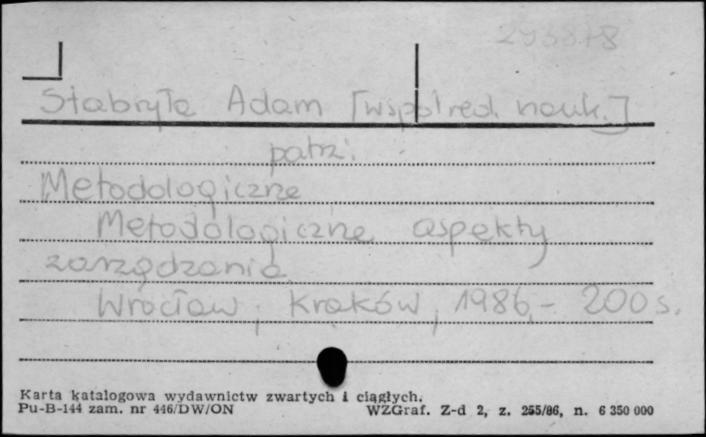 293878
Stabryła Adam [współred. nauk.]
patrz:
Metodologiczne
Metodologiczne aspekty
zarządzania
Wrocław, Kraków, 1986, - 200 s.
Karta katalogowa wydawnictw zwartych i ciągłych.
Pu-B-144 zam. nr 446/DW/ON WZGraf. Z-d 2, z. 255/86, n. 6 350 000